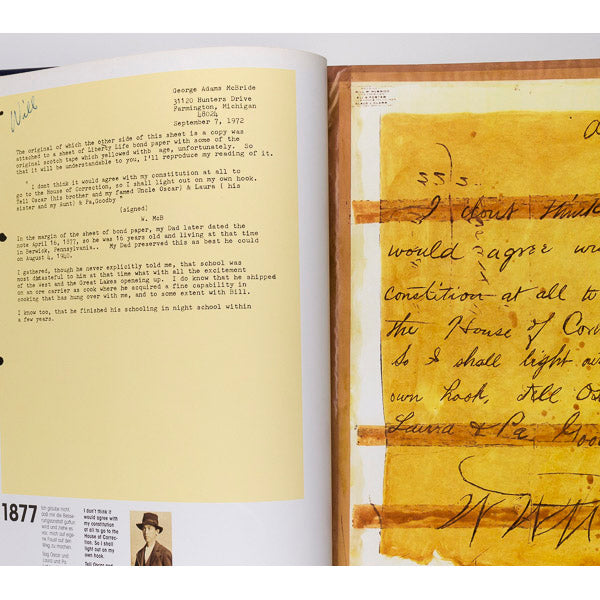 Will
George Adams McBride
31120 Hunters Drive
Farmington, Michigan
48024
September 7, 1972
The original of which the other side of this sheet is a copy was
attached to a sheet of Liberty Life bond paper with some of the
original scotch tape which yellowed withb age, unfortunately. So
that it will be understandable to you, I'll reproduce my reading of it.
" I dont think it would agree with my constitution at all to
go to the House of Correction, so I shall light out on my own hook.
Tell Oscar (his brother and my famed Uncle Oscar) & Laura ( his
sister and my Aunt) & Pa,Goodby "
(signed)
W. McB
In the margin of the sheet of bond paper, my Dad later dated the
note April 16, 1877, so he was 16 years old and living at that time
in Berwick, Pennsylvania.. My Dad preserved this as best he could
on August 4, 1940.
I gathered, though he never explicitly told me, that school was
most distasteful to him at that time what with all the excitement
of the West and the Great Lakes openeing up. I do know that he shipped
on an ore carrier as cook where he acquired a fine capability in
cooking that has hung over with me, and to some extent with Bill.
I know too, that he finished his schooling in night school within
a few years.
1877
Ich glaube nicht,
daß mir die Besse-
rungsanstalt guttun
wird und ziehe es
vor, mich auf eige-
ne Faust auf den
Weg zu machen.
Sag Oscar und
Laura und Pa
I don't think it
would agree with
my constitution
at all to go to the
House of Correc-
tion. So I shall
light out on my
own hook.
Tell Oscar and
I dont think
would agree wi
constition at all to
the House of Corr
So I shall light ou
own hook, tell Os
Laura & Pa Goo